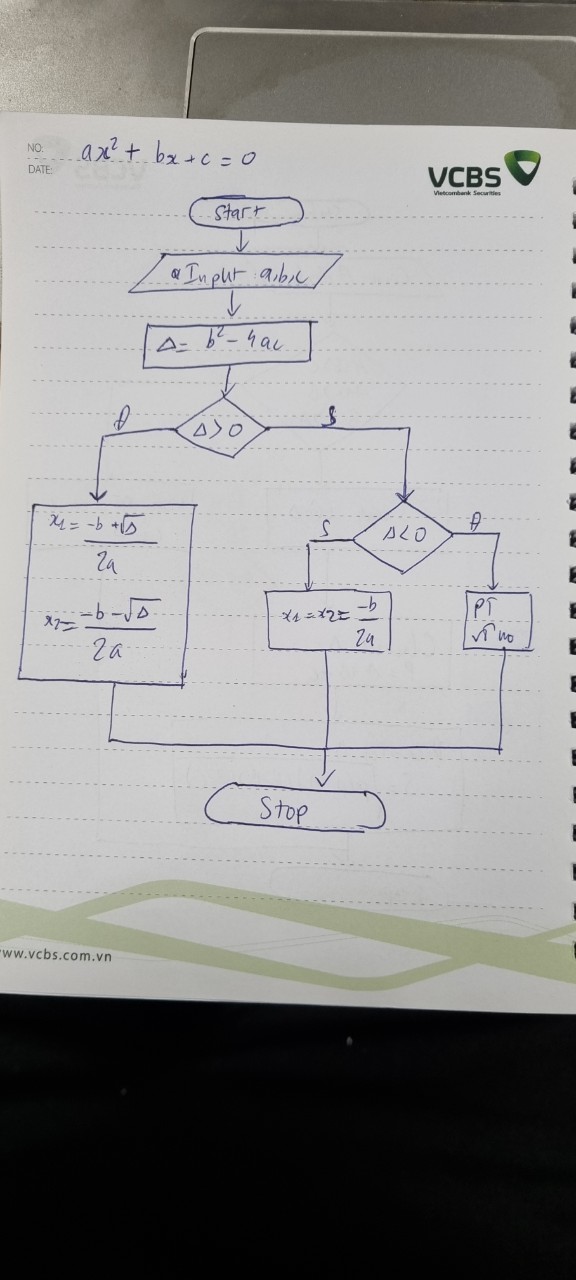 NO:
DATE:
ax² + bx + c = 0
VCBS
Vietcombank Securities
Start
Input a,b,c
Δ = b² - 4ac
Δ > 0
Đ
S
x1 = -b + √Δ / 2a
x2 = -b - √Δ / 2a
Δ < 0
S
Đ
x1 = x2 = -b / 2a
PT
no
Stop
www.vcbs.com.vn